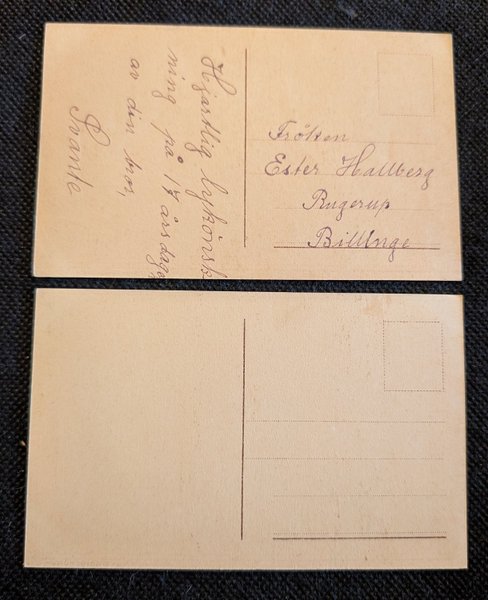 Hjärtlig lyckönsk
ning på 17 årsdagen
av din bror,
Svante
Fröken
Ester Hallberg
Rugerup
Billinge